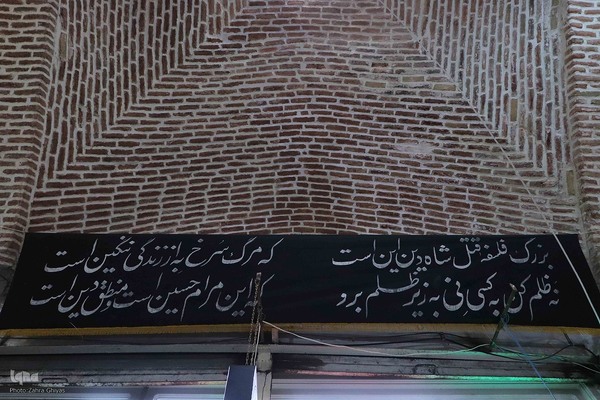 بزرگ فلسفه قتل شاه دین این است که مرگ سرخ به از زندگی ننگین است
نه ظلم کن به کسی نی به زیر ظلم برو که این مرام حسین است و منطق دین است
Photo: Zahra Ghiyas